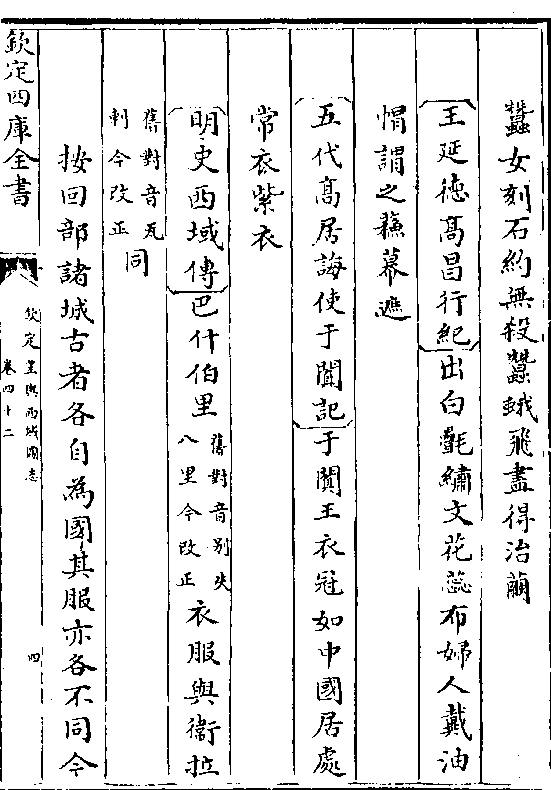 蠶女刻石約無殺蠶蛾飛盡得治繭
王延德高昌行紀出白㲲繡文花蕊布婦人戴油
帽謂之蘇幕遮
五代高居誨使于闐記于闐王衣冠如中國居處
常衣紫衣
明史西域傳巴什伯里舊對音别失八里今改正衣服與衛拉
舊對音瓦剌今改正同
按回部諸城古者各自為國其服亦各不同今
欽定四庫全書
欽定皇輿西域圖志
卷四十二
四